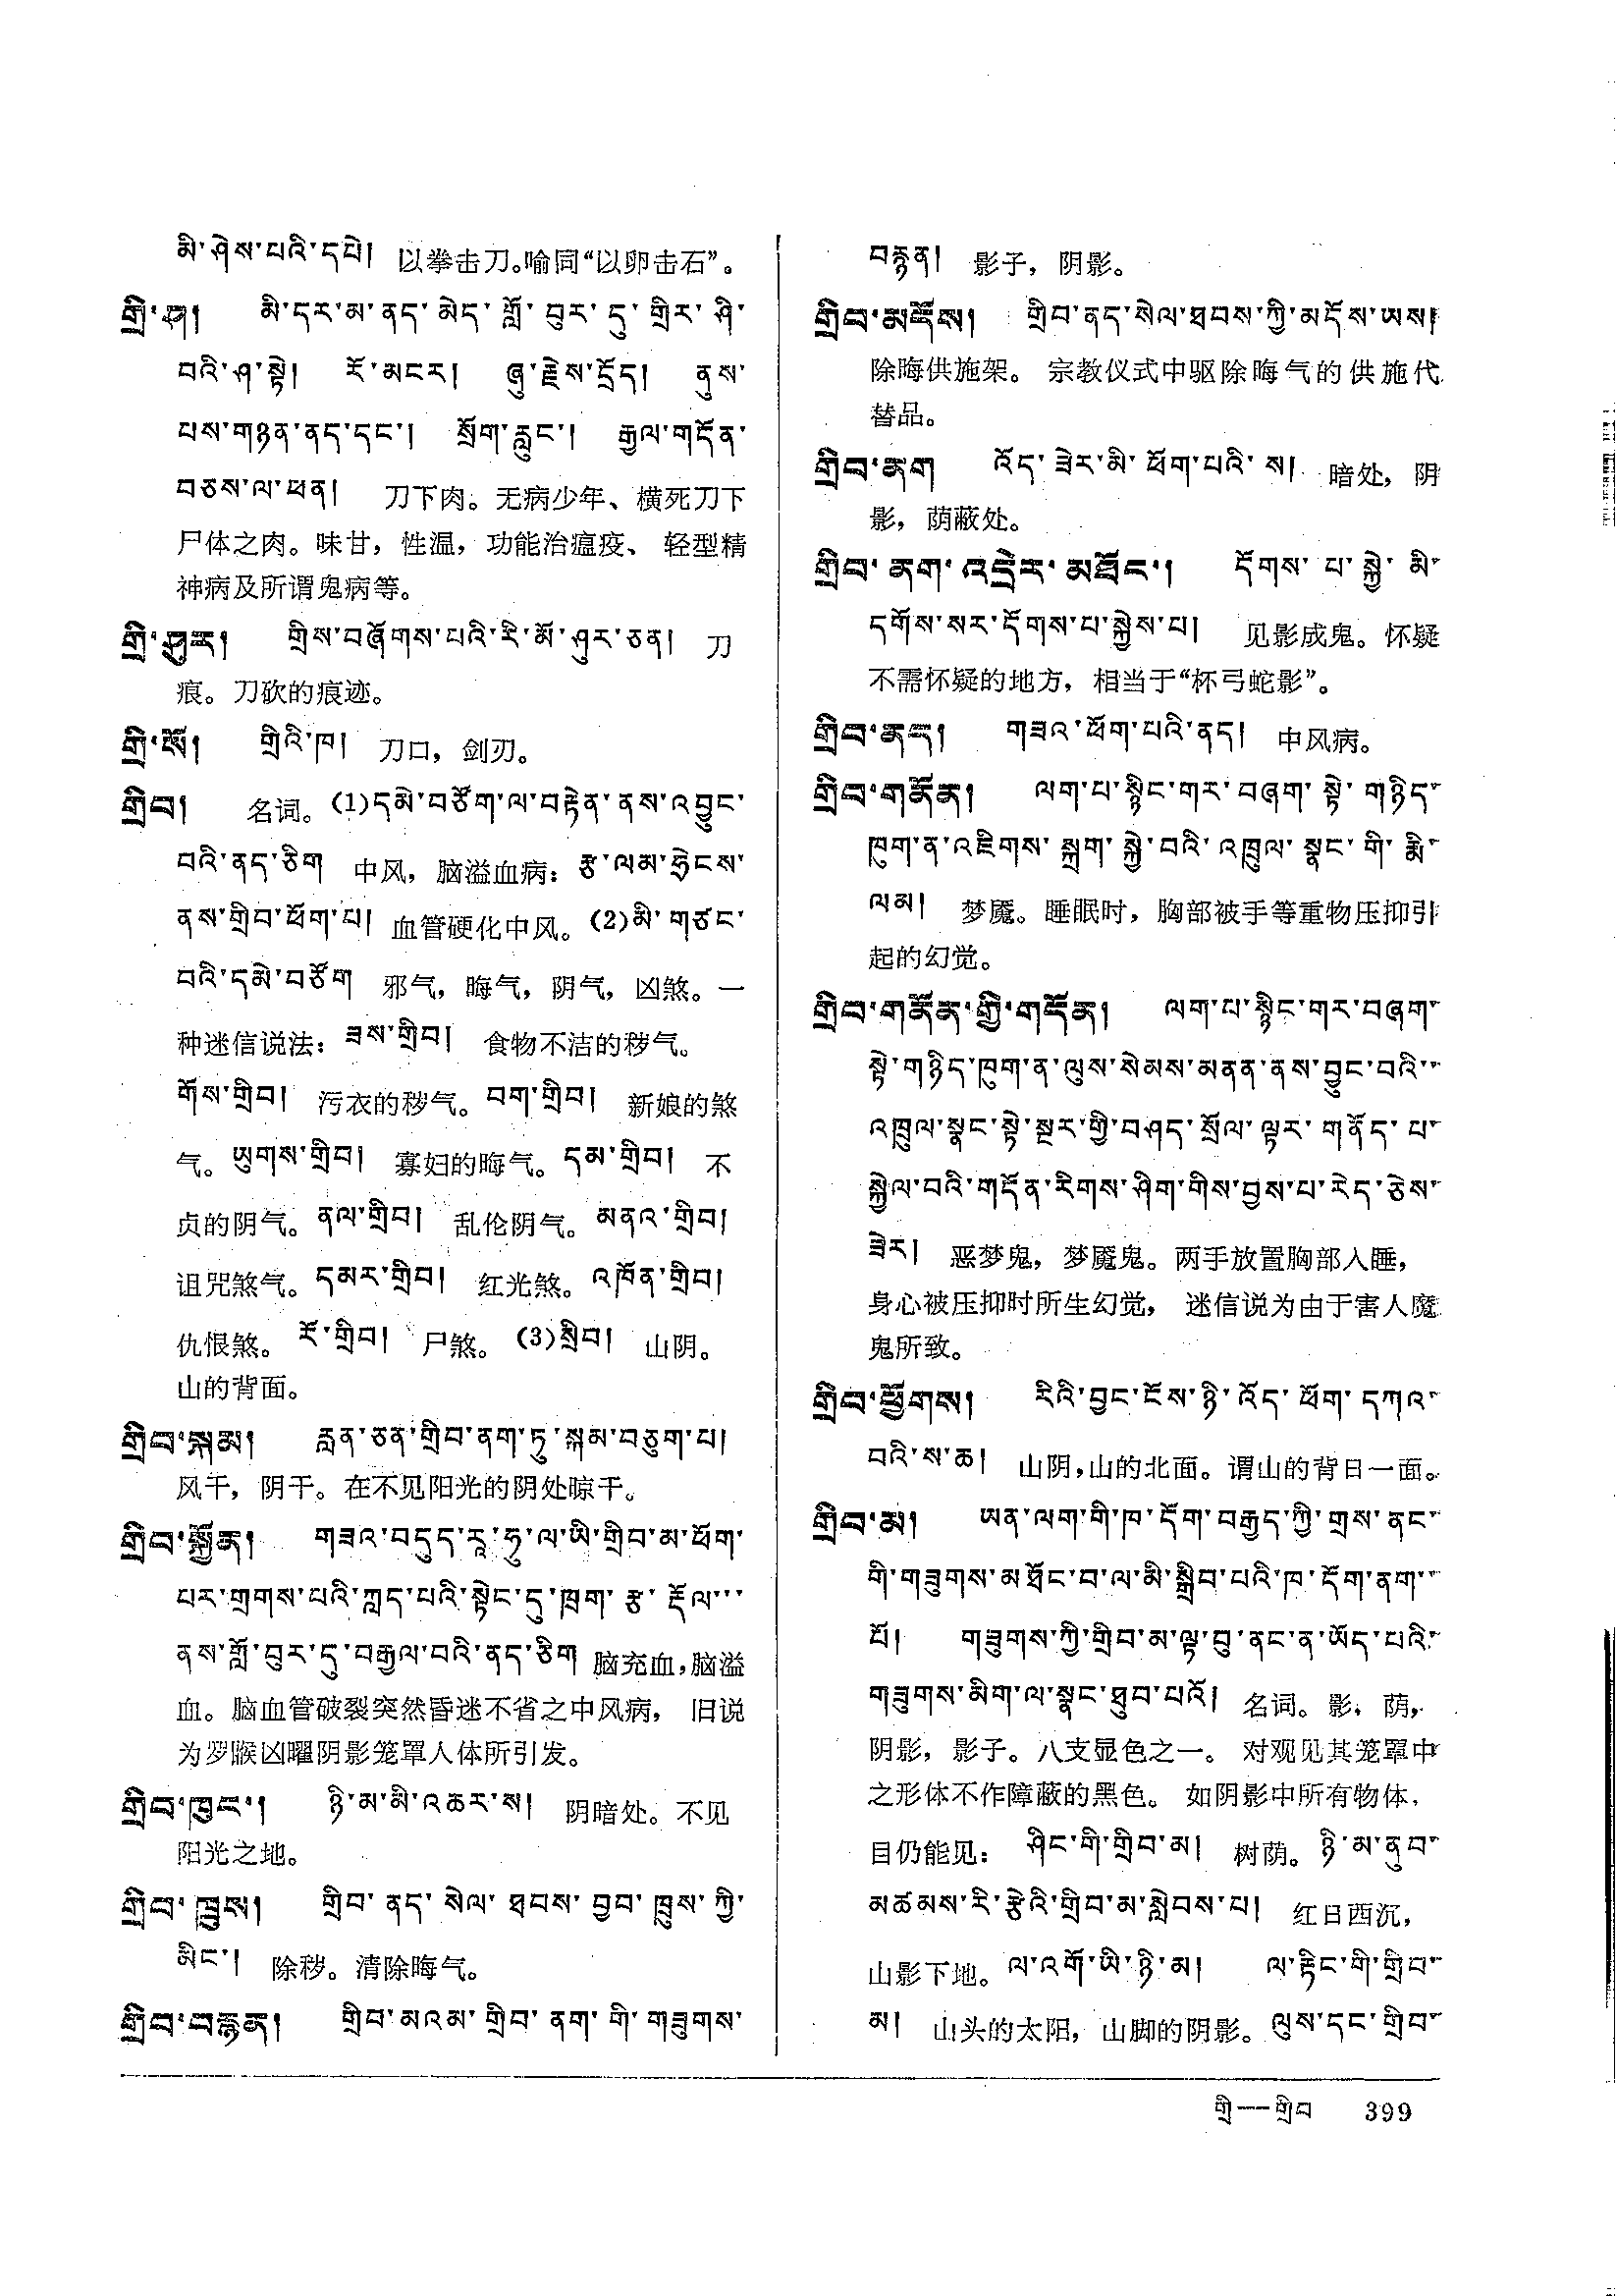 མི་ཤེས་པའི་དཔེ། 以拳击刀。喻同“以卵击石”。
གྲི་ཤ། མི་དར་མ་ནད་མེད་གློ་བུར་དུ་གྲིར་ཤི་
བའི་ཤ་སྟེ། རོ་མངར། ཞུ་རྗེས་དྲོད། ནུས་
པས་གཉན་ནད་དང་། སྲོག་རླུང་། རྒྱལ་གདོན་
བཅས་ལ་ཕན། 刀下肉。无病少年、横死刀下
尸体之肉。味甘，性温，功能治瘟疫、轻型精
神病及所谓鬼病等。
གྲི་ཤུར། གྲིས་བཞོགས་པའི་རི་མོ་ཤུར་ཅན། 刀
痕。刀砍的痕迹。
གྲི་སོ། གྲིའི་ཁ། 刀口，剑刃。
གྲིབ། 名词。(1)དམེ་བཙོག་ལ་བརྟེན་ནས་འབྱུང་
བའི་ནད་ཅིག 中风，脑溢血病：རྩ་ལམ་ཧྲེངས་
ནས་གྲིབ་ཕོག་པ། 血管硬化中风。(2)མི་གཙང་
བའི་དམེ་བཙོག 邪气，晦气，阴气，凶煞。一
种迷信说法：ཟས་གྲིབ། 食物不洁的秽气。
གོས་གྲིབ། 污衣的秽气。བག་གྲིབ། 新娘的煞
气。ཡུགས་གྲིབ། 寡妇的晦气。དམ་གྲིབ། 不
贞的阴气。ནལ་གྲིབ། 乱伦阴气。མནའ་གྲིབ།
诅咒煞气。དམར་གྲིབ། 红光煞。འཁོན་གྲིབ།
仇恨煞。རོ་གྲིབ། 尸煞。(3)སྲིབ། 山阴。
山的背面。
གྲིབ་སྐམ། རློན་ཅན་གྲིབ་ནག་ཏུ་སྐམ་བཅུག་པ།
风干，阴干。在不见阳光的阴处晾干。
གྲིབ་སྐྱོན། གཟའ་བདུད་རཱ་ཧུ་ལ་ཡི་གྲིབ་མ་ཕོག་
པར་གྲགས་པའི་ཀླད་པའི་སྟེང་དུ་ཁྲག་རྩ་རྡོལ་
ནས་གློ་བུར་དུ་བརྒྱལ་བའི་ནད་ཅིག 脑充血，脑溢
血。脑血管破裂突然昏迷不省之中风病，旧说
为罗睺凶曜阴影笼罩人体所引发。
གྲིབ་ཁུང་། ཉི་མ་མི་འཆར་ས། 阴暗处。不见
阳光之地。
གྲིབ་ཁྲུས། གྲིབ་ནད་སེལ་ཐབས་བྱབ་ཁྲུས་ཀྱི་
མིང་། 除秽。清除晦气。
གྲིབ་བརྙན། གྲིབ་མའམ་གྲིབ་ནག་གི་གཟུགས་
བརྙན། 影子，阴影。
གྲིབ་མདོས། གྲིབ་ནད་སེལ་ཐབས་ཀྱི་མདོས་ཡས།
除晦供施架。宗教仪式中驱除晦气的供施代
替品。
གྲིབ་ནག འོད་ཟེར་མི་ཕོག་པའི་ས། 暗处，阴
影，荫蔽处。
གྲིབ་ནག་འདྲེར་མཐོང་། དོགས་པ་སྐྱེ་མི་
དགོས་སར་དོགས་པ་སྐྱེས་པ། 见影成鬼。怀疑
不需怀疑的地方，相当于“杯弓蛇影”。
གྲིབ་ནད། གཟའ་ཕོག་པའི་ནད། 中风病。
གྲིབ་གནོན། ལག་པ་སྙིང་གར་བཞག་སྟེ་གཉིད་
ཁུག་ན་འཇིགས་སྐྲག་སྐྱེ་བའི་འཁྲུལ་སྣང་གི་རྨི་
ལམ། 梦魇。睡眠时，胸部被手等重物压抑引
起的幻觉。
གྲིབ་གནོན་གྱི་གདོན། ལག་པ་སྙིང་གར་བཞག་
སྟེ་གཉིད་ཁུག་ན་ལུས་སེམས་མནན་ནས་བྱུང་བའི་
འཁྲུལ་སྣང་སྟེ་སྔར་གྱི་བཤད་སྲོལ་ལྟར་གནོད་པ་
སྐྱེལ་བའི་གདོན་རིགས་ཤིག་གིས་བྱས་པ་རེད་ཅེས་
ཟེར། 恶梦鬼，梦魇鬼。两手放置胸部入睡，
身心被压抑时所生幻觉，迷信说为由于害人魔
鬼所致。
གྲིབ་ཕྱོགས། རིའི་བྱང་ངོས་ཉི་འོད་ཕོག་དཀའ་
བའི་ས་ཆ། 山阴，山的北面。谓山的背日一面。
གྲིབ་མ། ཡན་ལག་གི་ཁ་དོག་བརྒྱད་ཀྱི་གྲས་ནང་
གི་གཟུགས་མཐོང་བ་ལ་མི་སྒྲིབ་པའི་ཁ་དོག་ནག་
པོ། གཟུགས་ཀྱི་གྲིབ་མ་ལྟ་བུ་ནང་ན་ཡོད་པའི་
གཟུགས་མིག་ལ་སྣང་ཐུབ་པའོ། 名词。影，荫，
阴影，影子。八支显色之一。对观见其笼罩中
之形体不作障蔽的黑色。如阴影中所有物体，
目仍能见：ཤིང་གི་གྲིབ་མ། 树荫。ཉི་མ་ནུབ་
མཚམས་རི་རྩེའི་གྲིབ་མ་སླེབས་པ། 红日西沉，
山影下地。ལ་འགོ་ཡི་ཉི་མ། ལ་རྟིང་གི་གྲིབ་
མ། 山头的太阳，山脚的阴影。ལུས་དང་གྲིབ་
གྲི—གྲིབ 399